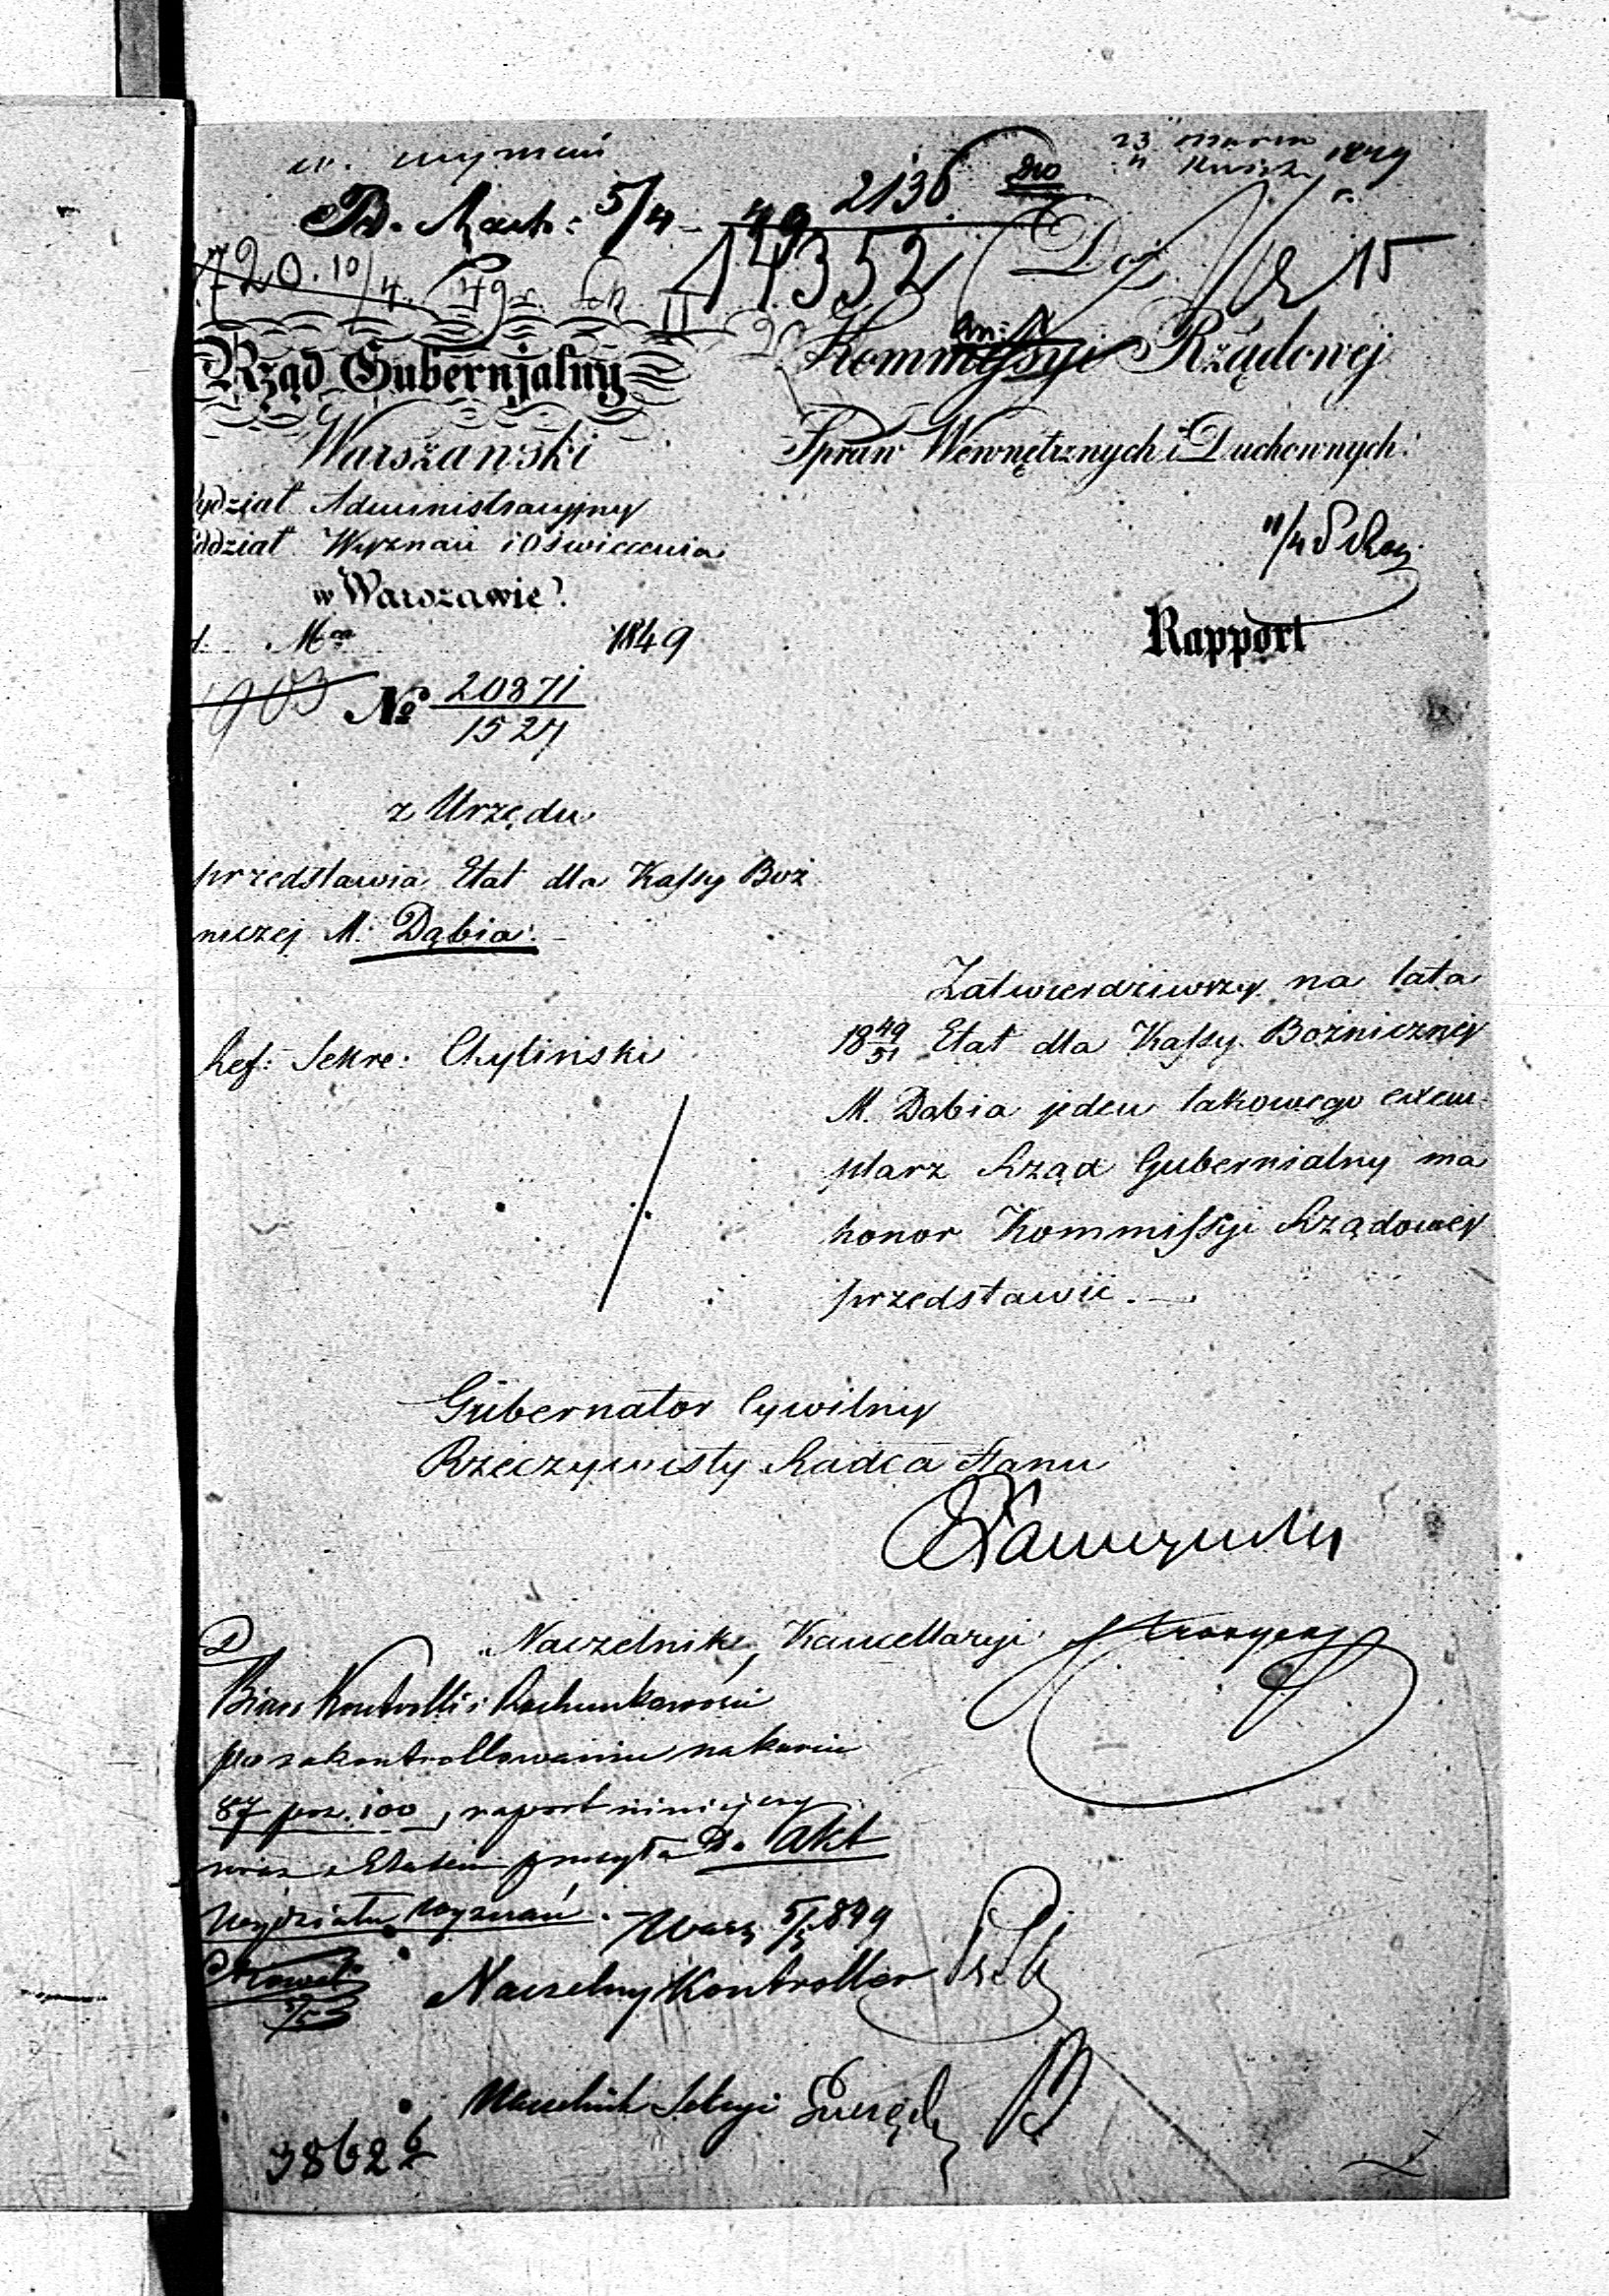 w. wyznań
23 Marca
4 Kwiet. 1849 r.
B. Rach: 5/4 49 2136
14352
720. 10/4 49 r.
15
Rząd Gubernjalny
Warszawski
Wydział Administracyjny
Oddział Wyznań i Oświecenia
w Warszawie
d. Mca 1849
903 No 20871
1527
Do
Kommyssyi Rządowej
Spraw Wewnętrznych i Duchownych
11/4
Rapport
z Urzędu
przedstawia Etat dla Kassy Boż
niczej M. Dąbia.
Ref: Sekre: Chyliński
Zatwierdziwszy na lata
18 49/51 Etat dla Kassy Bożnicznej
M. Dąbia jeden takowego exem-
plarz Rząd Gubernialny ma
honor Kommissyi Rządowej
przedstawić.
Gubernator Cywilny
Rzeczywisty Radca Stanu
Naczelnik Kancellaryi
Biuro Kontrolli i Rachunkowości
po zakontrollowaniu na karcie
87 poz. 100, raport niniejszy
wraz z Etatem przesyła Do akt
Wydziału Wyznań. - Warsz 5/5 849
Naczelny Kontroller
Naczelnik Sekcyi
38626